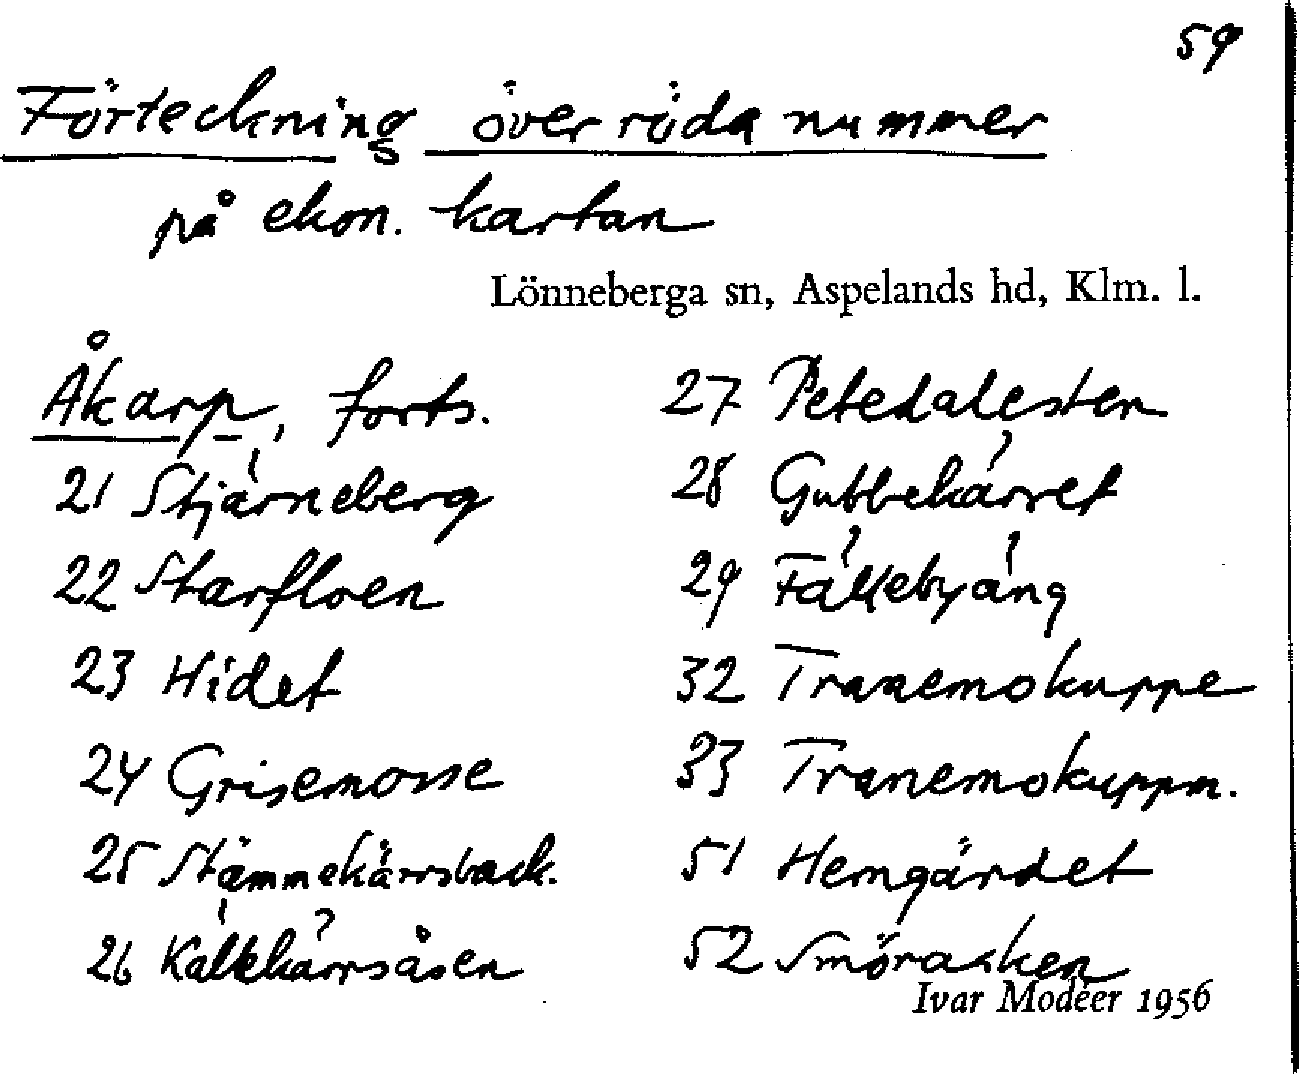 59
Förteckning över röda nummer
på ekon. kartan
Lönneberga sn, Aspelands hd, Klm. l.
Åkarp, forts.
21 Stjärneberg
22 Starfloen
23 Hidet
24 Grisemosse
25 Stämmekärrsback.
26 Källekärrsåsen
27 Petedalesten
28 Gubbekärret
29 Fällebyäng
32 Tranemokuppe
33 Tranemokuppm.
51 Hemgärdet
52 Smörasken
Ivar Modéer 1956